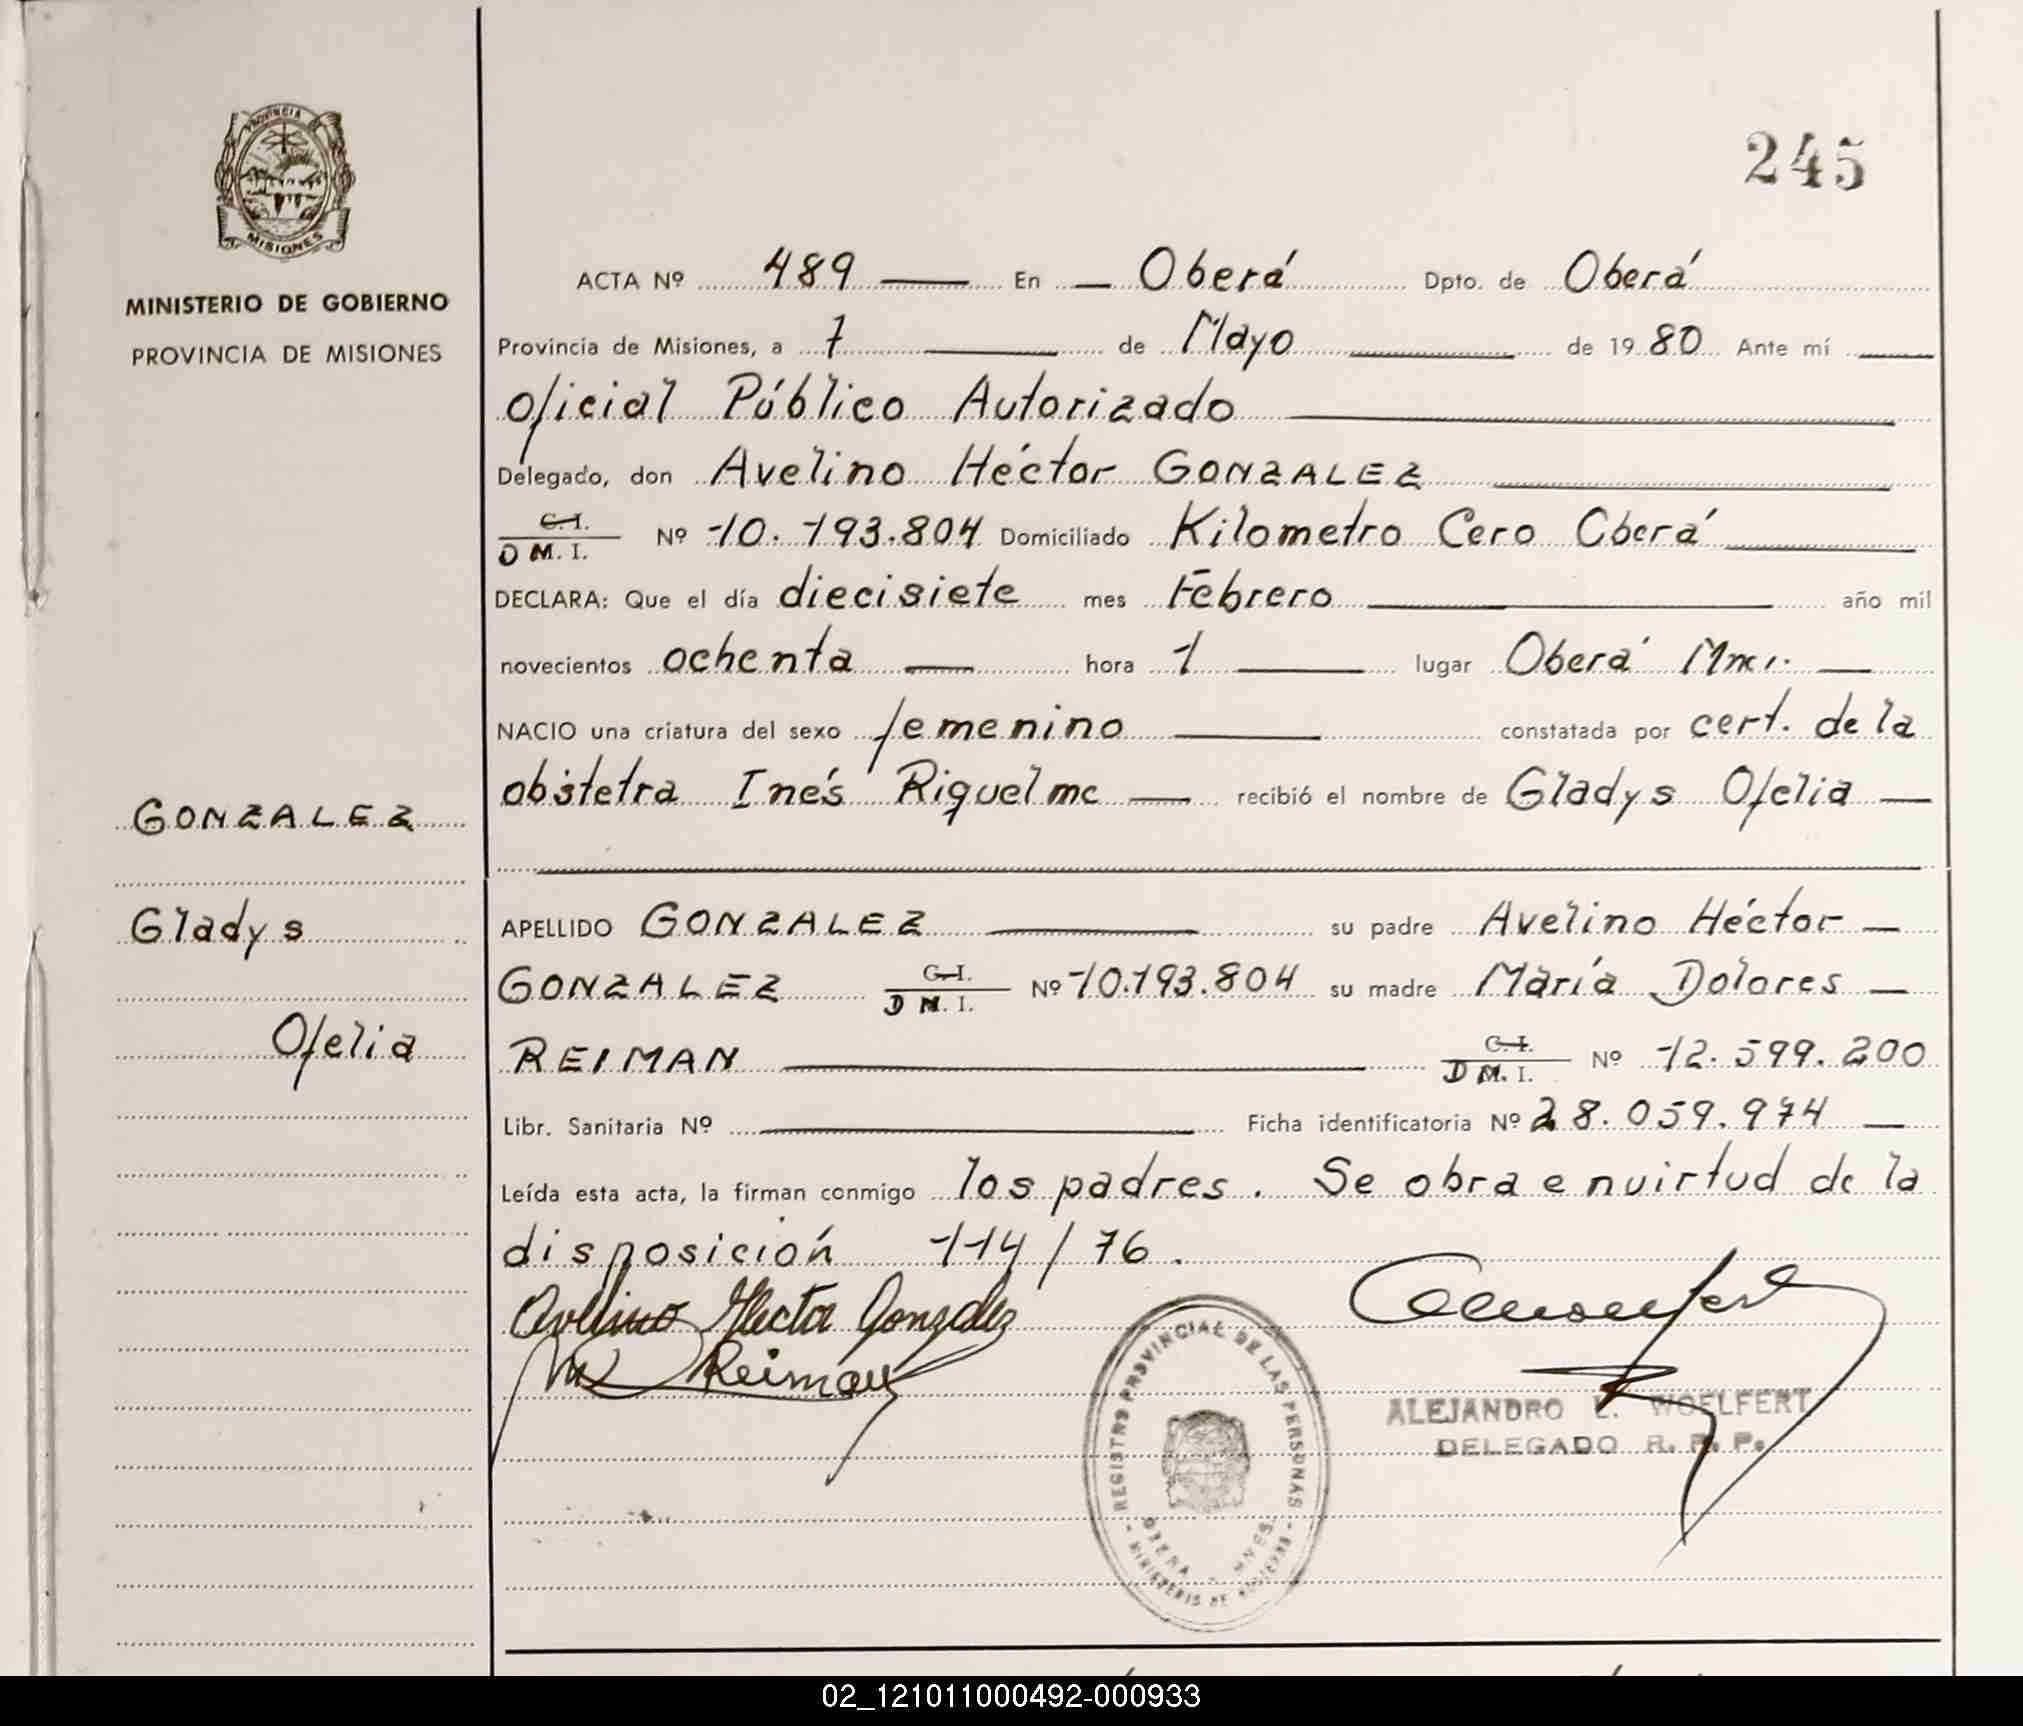 PROVINCIA DE
MISIONES
MINISTERIO DE GOBIERNO
PROVINCIA DE MISIONES
GONZALEZ
Gladys
Ofelia
245
ACTA Nº 489 En Oberá Dpto. de Oberá
Provincia de Misiones, a 7 de Mayo de 1980 Ante mí
oficial Público Autorizado
Delegado, don Avelino Héctor GONZALEZ
C. I.
D M. I. Nº 10.193.804 Domiciliado Kilometro Cero Oberá
DECLARA: Que el día diecisiete mes Febrero año mil
novecientos ochenta hora 1 lugar Oberá Mnes.
NACIO una criatura del sexo femenino constatada por cert. de la
obstetra Inés Riquelme recibió el nombre de Gladys Ofelia
APELLIDO GONZALEZ su padre Avelino Héctor
GONZALEZ C. I.
D M. I. Nº 10.193.804 su madre María Dolores
REIMAN C. I.
D M. I. Nº 12.599.200
Libr. Sanitaria Nº Ficha identificatoria Nº 28.059.974
Leída esta acta, la firman conmigo los padres. Se obra en virtud de la
disposición 114/76.
Avelino Hector Gonzalez
Reiman
REGISTRO PROVINCIAL DE LAS PERSONAS
OBERA - MNES.
- MINISTERIO DE GOBIERNO -
ALEJANDRO L. WOELFERT
DELEGADO R. P. P.
02_121011000492-000933